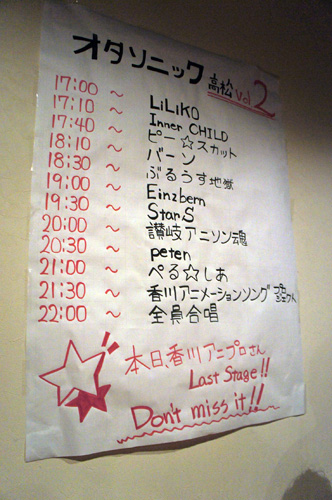 オタソニック 高松 vol 2
17:00 ～
17:10 ～ LiLiKO
17:40 ～ Inner CHILD
18:10 ～ ピー☆スカット
18:30 ～ バーン
19:00 ～ ぶるうす地獄
19:30 ～ Einzbern
20:00 ～ StarS
20:30 ～ 讃岐アニソン魂
21:00 ～ peten
21:30 ～ ぺる☆しあ
22:00 ～ 香川アニメーションソング
全員合唱
本日、香川アニプロさん
Last Stage!!
Don't miss it!!